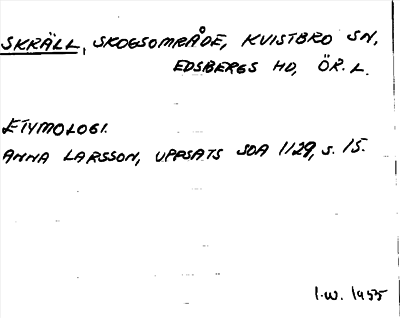 SKRÄLL, SKOGSOMRÅDE, KVISTBRO SN,
EDSBERGS HD, ÖR. L.
ETYMOLOGI.
ANNA LARSSON, UPPSATS SOA 1129, S. 15.
I.W. 1955